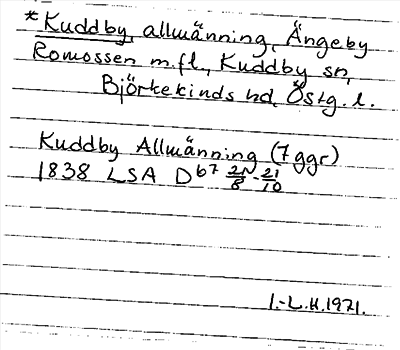 *Kuddby, allmänning, Ängeby
Romossen m.fl., Kuddby sn,
Björkekinds hd, Östg. l.
Kuddby Allmänning (7 ggr)
1838 LSA D b7 21/8 - 21/10
I.-L.H.1971.